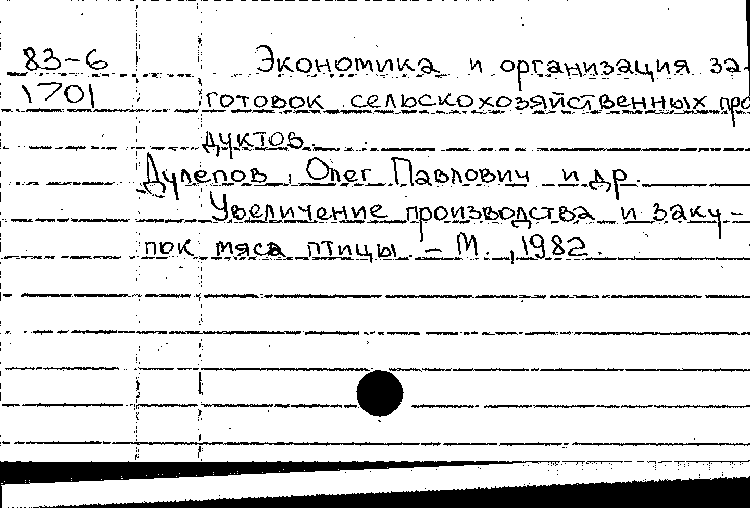 83-6 Экономика и организация за-
1701 готовок сельскохозяйственных про
дуктов.
Дулепов, Олег Павлович и др.
Увеличение производства и заку-
пок мяса птицы. - М., 1982.